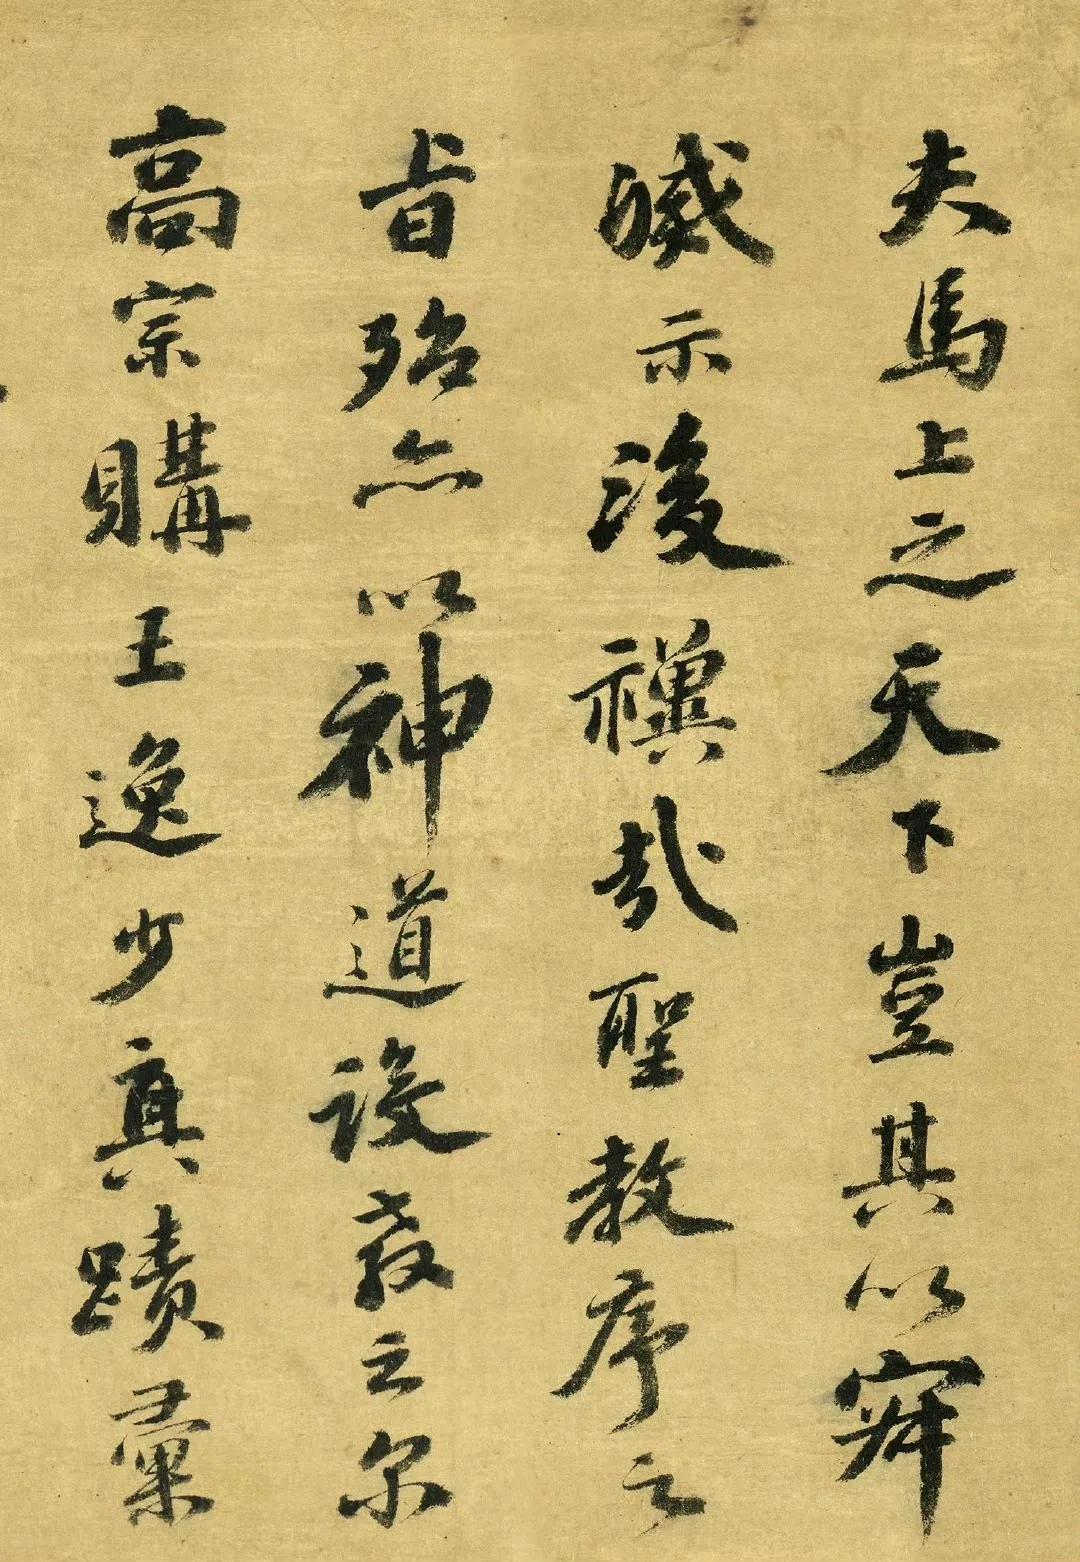 夫馬上之天下豈其以寂
滅示後禩哉聖教序之
旨殆亦以神道設教云尔
高宗購王逸少真蹟彙